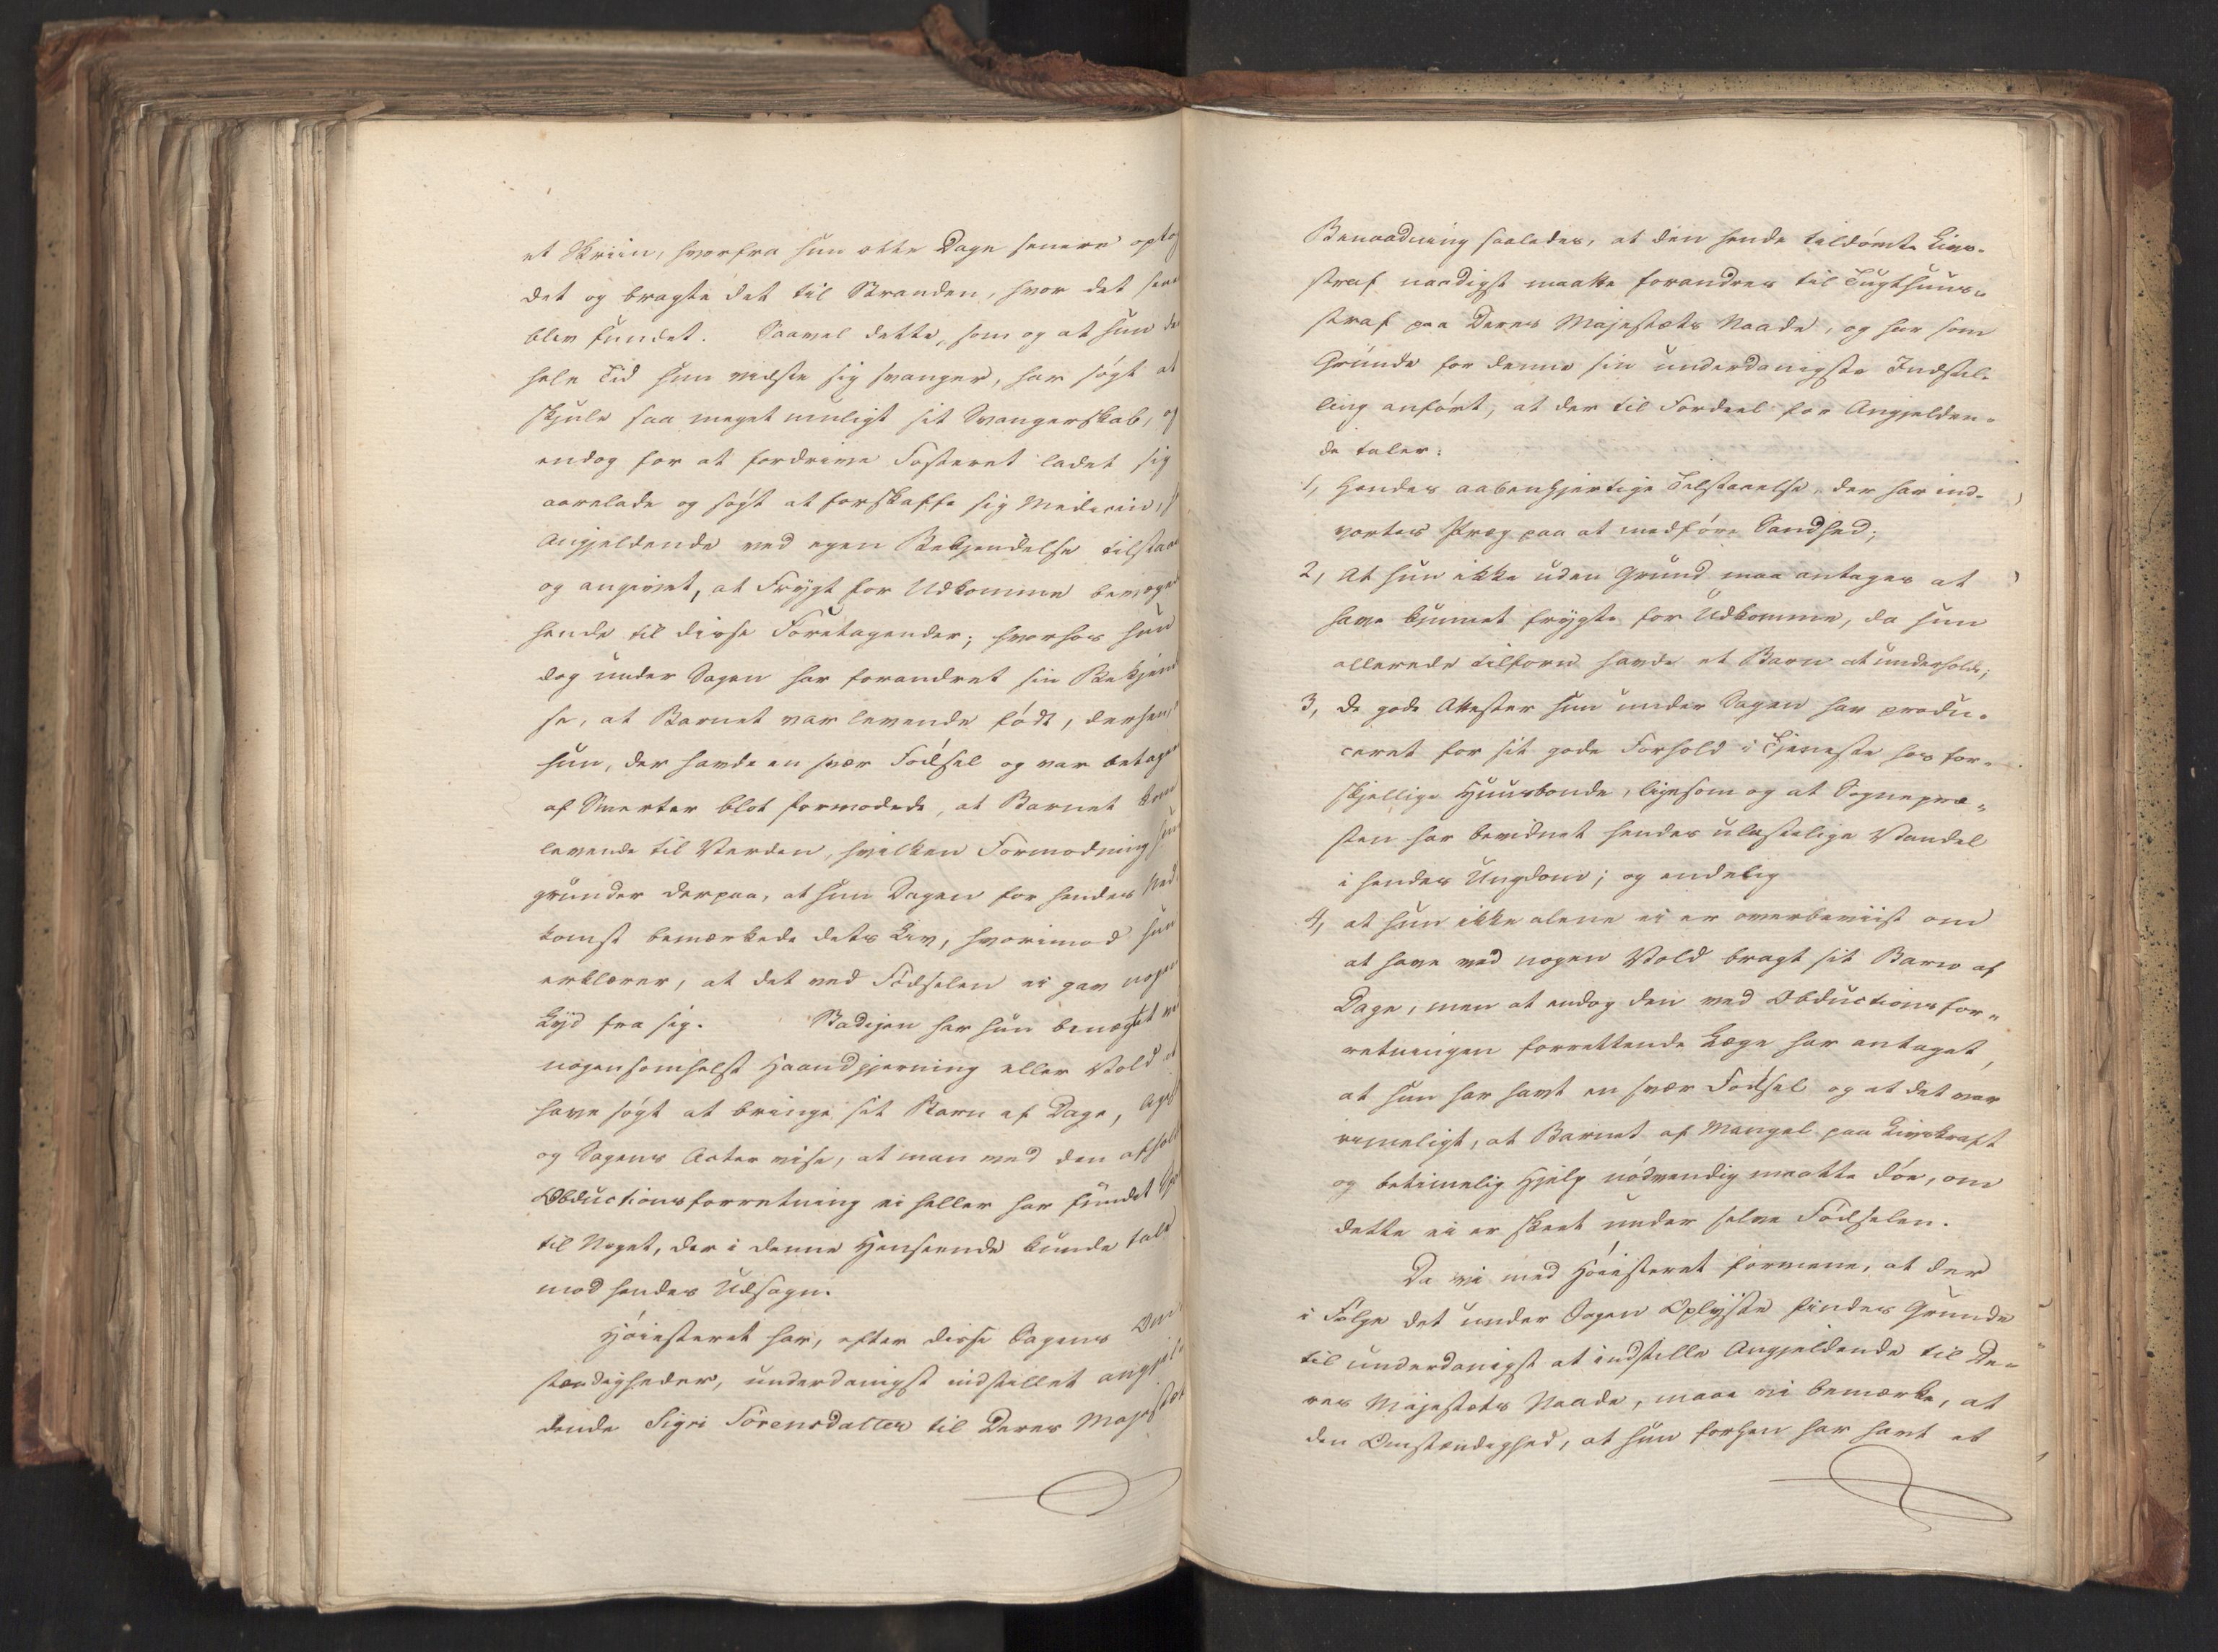 et Skriin, hvorfra hun otte Dage senere optog
det og bragte det til Stranden, hvor det sene
blev fundet. Saavel dette, som og at hun den
hele Tid hun vidste sig svanger, har søgt at
skjule saa meget muligt sit Svangerskab, og
endog for at fordrive Fosteret ladet sig
aarelade og søgt at forskaffe sig Medicin,
Angjeldende ved egen Bekjendelse tilstaaet
og angivet, at Frygt for Udkomme bevæged
hende til disse Foretagender; hvorhos hun
dog under Sagen har forandret sin Bekjend
se, at Barnet var levende født, derhen,
hun, der havde en svær Fødsel og var betagen
af Smerter blot formodede, at Barnet kom
levende til Verden, hvilken Formodning hun
grunder derpaa, at hun Dagen for hendes Ned
komst bemærkede dets Liv, hvorimod hun
erklærer, at det ved Fødselen ei gav nogen
Lyd fra sig. Stadigen har hun benægtet ved
nogensomhelst Haandgjerning eller Vold at
have søgt at bringe sit Barn af Dage,
og Sagens Acter vise, at man ved den afholdte
Obductionsforretning ei heller har fundet Spor
til Noget, der i denne Henseende kunde tale
mod hendes Udsagn.
Høiesteret har, efter disse Sagens Om
stændigheder, underdanigst indstillet angjel-
dende Sigri Sørensdatter til Deres Majestæts
Benaadning saaledes, at den hende tildømte Livs-
straf naadigst maatte forandres til Tugthuus-
straf paa Deres Majestæts Naade, og har som
Grunde for denne sin underdanigste Indstil-
ling anført, at der til Fordeel for Angjelden-
de taler:
1, Hendes aabenhjertige Tilstaaelse, der har ind-
vortes Præg paa at medføre Sandhed;
2, At hun ikke uden Grund maa antages at
have kunnet frygte for Udkomme, da hun
allerede tilforn havde et Barn at underholde;
3, de gode Attester hun under Sagen har produ-
ceret for sit gode Forhold i Tjeneste hos for-
skjellige Huusbonde, ligesom og at Sognepræ-
sten har bevidnet hendes ulastelige Vandel
i hendes Ungdom; og endelig
4, at hun ikke alene ei er overbeviist om
at have ved nogen Vold bragt sit Barn af
Dage, men at endog den ved Obductionsfor-
retningen forrettende Læge har antaget,
at hun har havt en svær Fødsel og at det var
rimeligt, at Barnet af Mangel paa Livskraft
og betimelig Hjelp nødvendig maatte døe, om
dette ei er skeet under selve Fødselen.
Da vi med Høiesteret formene, at der
i Følge det under Sagen Oplyste findes Grunde
til underdanigst at indstille Angjeldende til De-
res Majestæts Naade, maae vi bemærke, at
den Omstændighed, at hun forhen har havt et